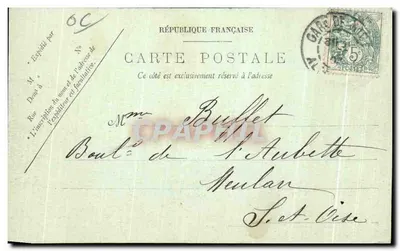 OC
RÉPUBLIQUE FRANÇAISE
CARTE POSTALE
Ce côté est exclusivement réservé à l'adresse
M. Expédié par
Demt à
Rue
L'inscription du nom et de l'adresse de
l'expéditeur est facultative.
Mme Buffet
Boul.d de l'Aubette
Meulan
S. et Oise
CPARAMA
GARE DE
5